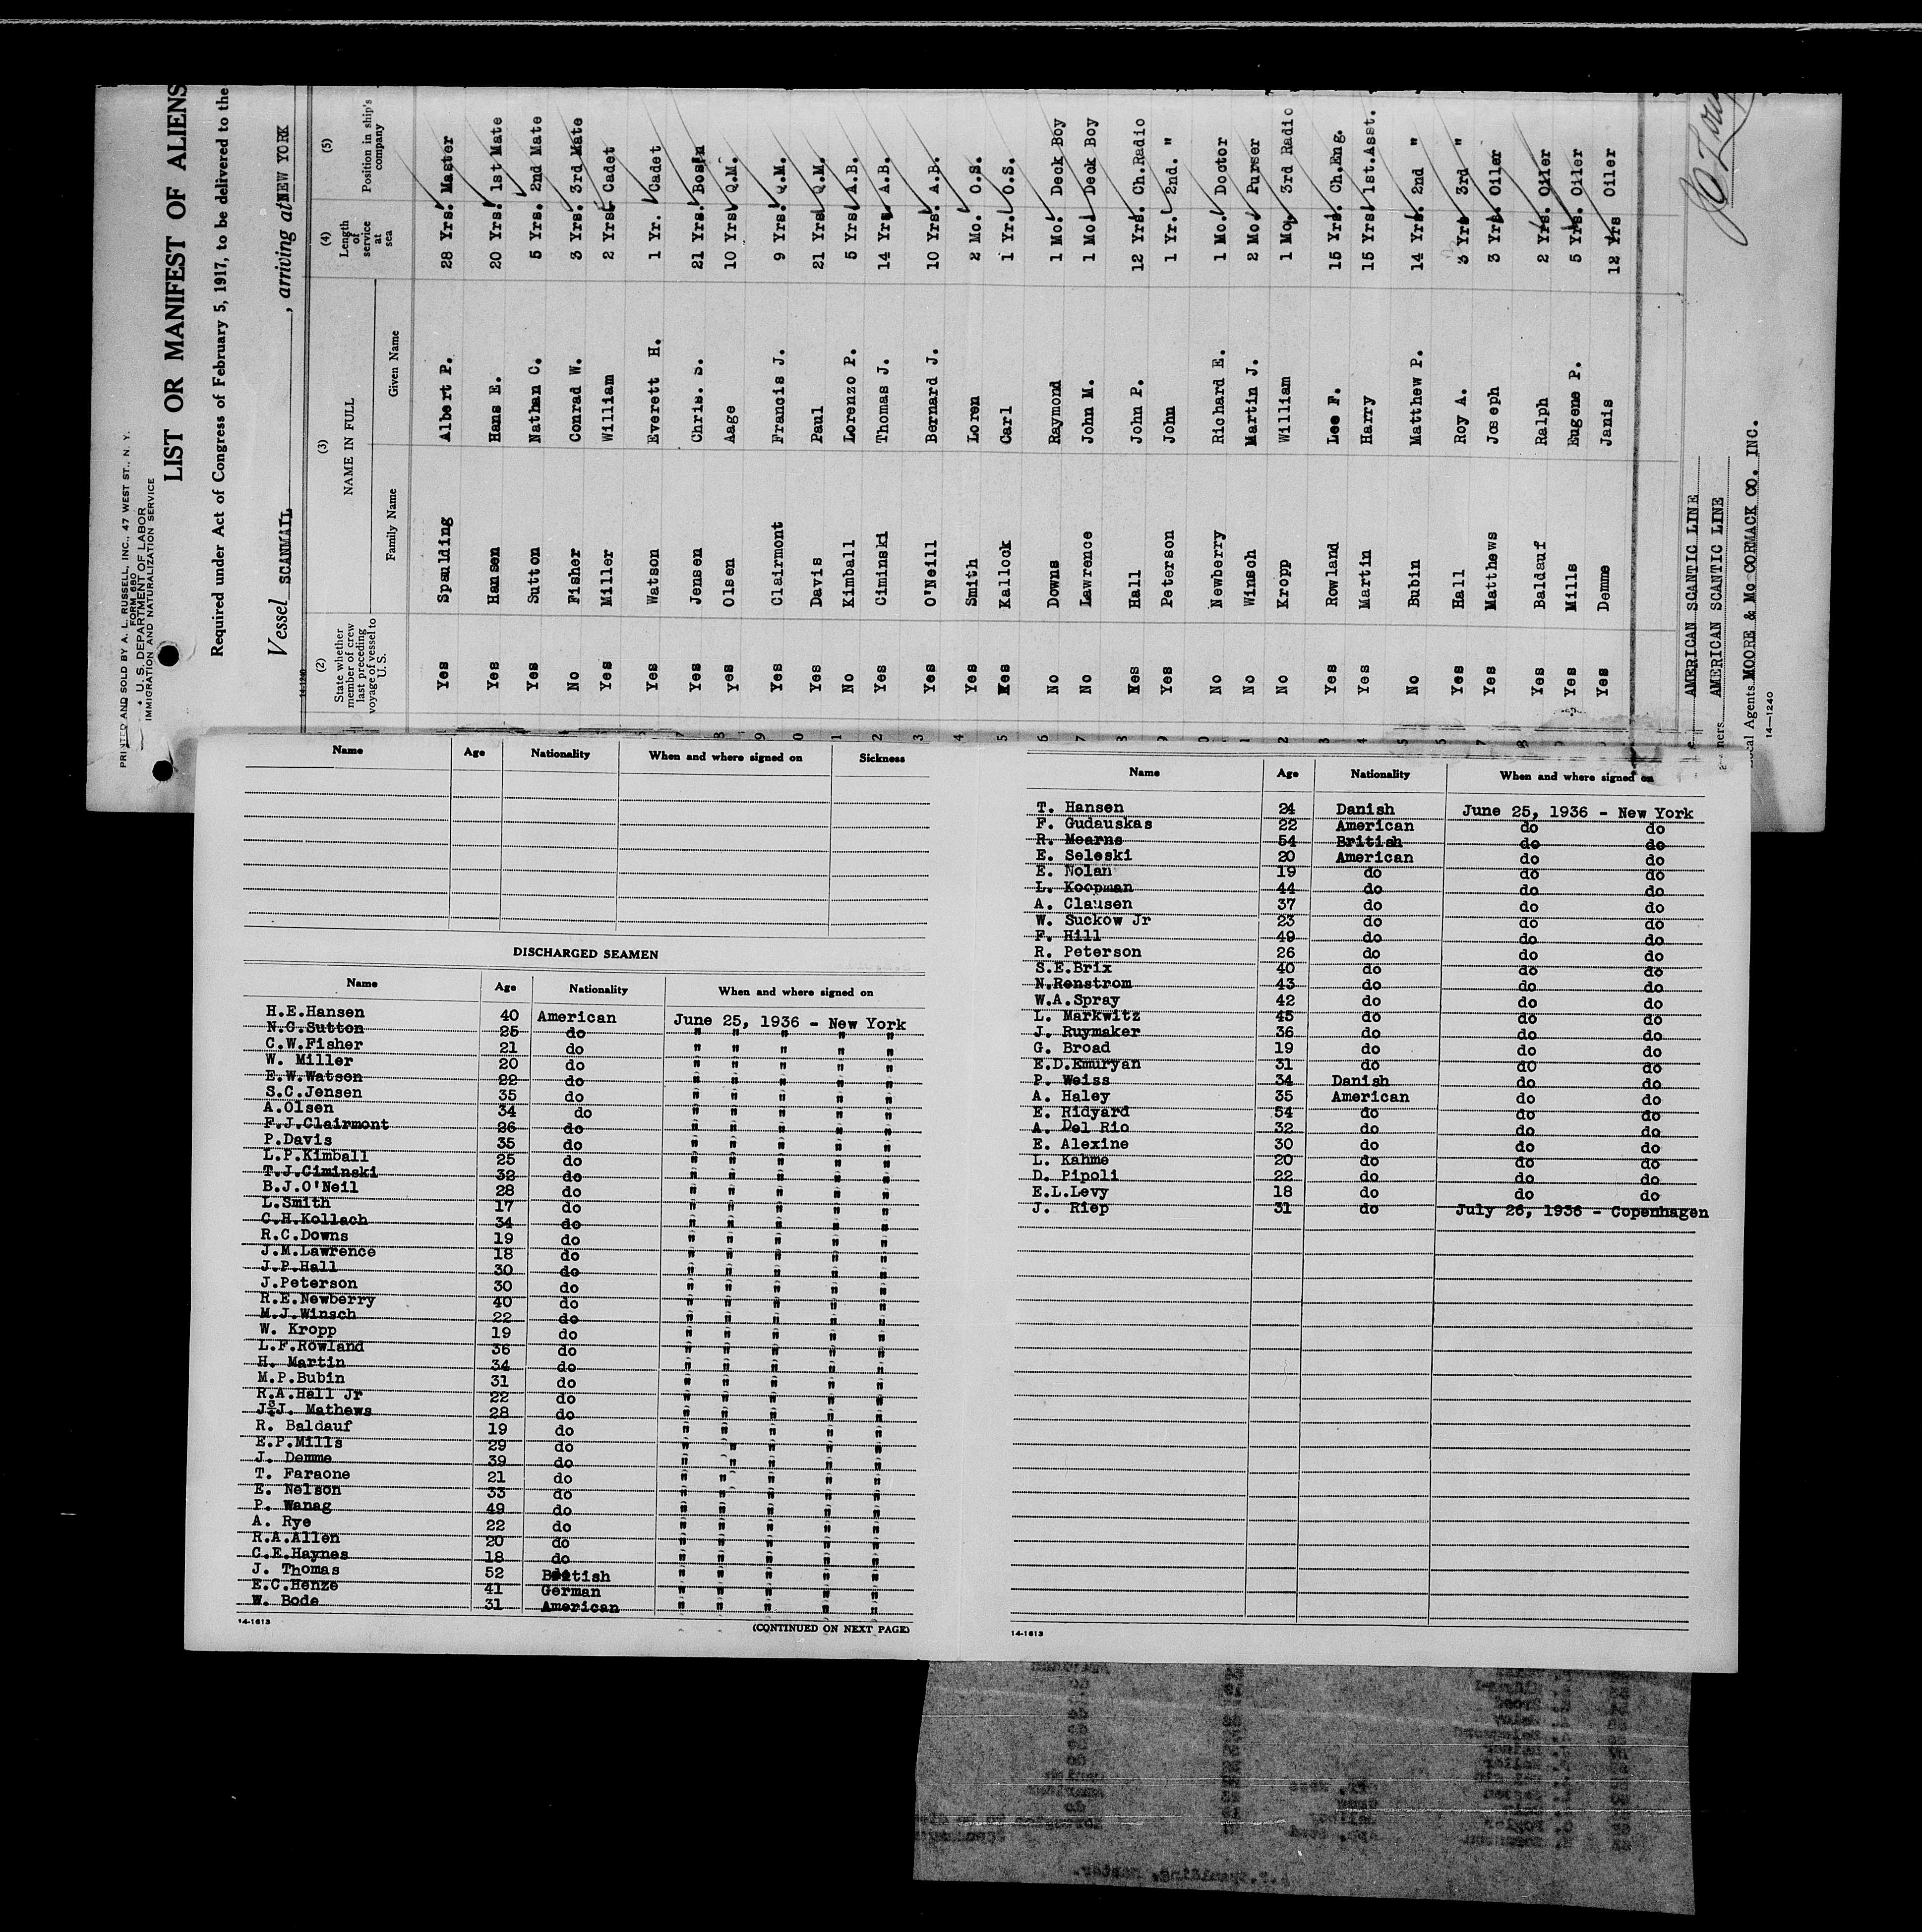 PRINTED AND SOLD BY A. L. RUSSELL, INC., 47 WEST ST., N. Y.
FORM 680
U. S. DEPARTMENT OF LABOR
IMMIGRATION AND NATURALIZATION SERVICE
LIST OR MANIFEST OF ALIENS
Required under Act of Congress of February 5, 1917, to be delivered to the
Vessel SCANMAIL, arriving at NEW YORK
14-1240
(2) (3) (4) (5)
State whether member of crew last preceding voyage of vessel to U. S. NAME IN FULL Length of service at sea Position in ship's company
Family Name Given Name
Yes Spaulding Albert P. 28 Yrs. Master
Yes Hansen Hans E. 20 Yrs. 1st Mate
Yes Sutton Nathan C. 5 Yrs. 2nd Mate
No Fisher Conrad W. 3 Yrs. 3rd Mate
Yes Miller William 2 Yrs. Cadet
Yes Watson Everett H. 1 Yr. Cadet
Yes Jensen Chris. S. 21 Yrs. Bos'n
yes Olsen Aage 10 Yrs. Q.M.
Yes Clairmont Francis J. 9 Yrs. Q.M.
Yes Davis Paul 21 Yrs. Q.M.
No Kimball Lorenzo P. 5 Yrs. A.B.
Yes Ciminski Thomas J. 14 Yrs. A.B.
Yes O'Neill Bernard J. 10 Yrs. A.B.
Yes Smith Loren 2 Mo. O.S.
Yes Kallock Carl 1 Yr. O.S.
No Downs Raymond 1 Mo. Deck Boy
No Lawrence John M. 1 Mo. Deck Boy
Yes Hall John P. 12 Yrs. Ch.Radio
Yes Peterson John 1 Yr. 2nd. "
No Newberry Richard E. 1 Mo. Doctor
No Winsch Martin J. 2 Mo. Purser
No Kropp William 1 Mo. 3rd Radio
Yes Rowland Lee F. 15 Yrs. Ch.Eng.
Yes Martin Harry 15 Yrs. 1st.Asst.
No Bubin Matthew P. 14 Yrs. 2nd "
Yes Hall Roy A. 3 Yrs 3rd "
Yes Matthews Joseph 3 Yrs. Oiler
Yes Baldauf Ralph 2 Yrs. Oiler
Yes Mills Eugene P. 5 Yrs. Oiler
Yes Demme Janis 12 Yrs Oiler
AMERICAN SCANTIC LINE
AMERICAN SCANTIC LINE
Local Agents MOORE & McCORMACK CO. INC.
14-1240
Name Age Nationality When and where signed on Sickness
DISCHARGED SEAMEN
Name Age Nationality When and where signed on
H.E.Hansen 40 American June 25, 1936 - New York
N.C.Sutton 25 do " " " " "
C.W.Fisher 21 do " " " " "
W. Miller 20 do " " " " "
E.W.Watson 22 do " " " " "
S.C.Jensen 35 do " " " " "
A.Olsen 34 do " " " " "
F.J.Clairmont 26 do " " " " "
P.Davis 35 do " " " " "
L.P.Kimball 25 do " " " " "
T.J.Ciminski 32 do " " " " "
B.J.O'Neil 28 do " " " " "
L.Smith 17 do " " " " "
C.H.Kollach 34 do " " " " "
R.C.Downs 19 do " " " " "
J.M.Lawrence 18 do " " " " "
J.P.Hall 30 do " " " " "
J.Peterson 30 do " " " " "
R.E.Newberry 40 do " " " " "
M.J.Winsch 22 do " " " " "
W. Kropp 19 do " " " " "
L.F.Rowland 36 do " " " " "
H. Martin 34 do " " " " "
M.P.Bubin 31 do " " " " "
R.A.Hall Jr 22 do " " " " "
J.J. Mathews 28 do " " " " "
R. Baldauf 19 do " " " " "
E.P.Mills 29 do " " " " "
J. Demme 39 do " " " " "
T. Faraone 21 do " " " " "
E. Nelson 33 do " " " " "
P. Wanag 49 do " " " " "
A. Rye 22 do " " " " "
R.A.Allen 20 do " " " " "
C.E.Haynes 18 do " " " " "
J. Thomas 52 British " " " " "
E.C.Henze 41 German " " " " "
W. Bode 31 American " " " " "
14-1613
(CONTINUED ON NEXT PAGE)
Name Age Nationality When and where signed on
T. Hansen 24 Danish June 25, 1936 - New York
F. Gudauskas 22 American do do
R. Mearns 54 British do do
E. Seleski 20 American do do
E. Nolan 19 do do do
L. Koopman 44 do do do
A. Clausen 37 do do do
W. Suckow Jr 23 do do do
F. Hill 49 do do do
R. Peterson 26 do do do
S.E.Brix 40 do do do
N.Renstrom 43 do do do
W.A.Spray 42 do do do
L. Markwitz 45 do do do
J. Ruymaker 36 do do do
G. Broad 19 do do do
E.D.Emuryan 31 do do do
P. Weiss 34 Danish do do
A. Haley 35 American do do
E. Ridyard 54 do do do
A. Del Rio 32 do do do
E. Alexine 30 do do do
L. Kahme 20 do do do
D. Pipoli 22 do do do
E.L.Levy 18 do do do
J. Riep 31 do July 26, 1936 - Copenhagen
14-1613